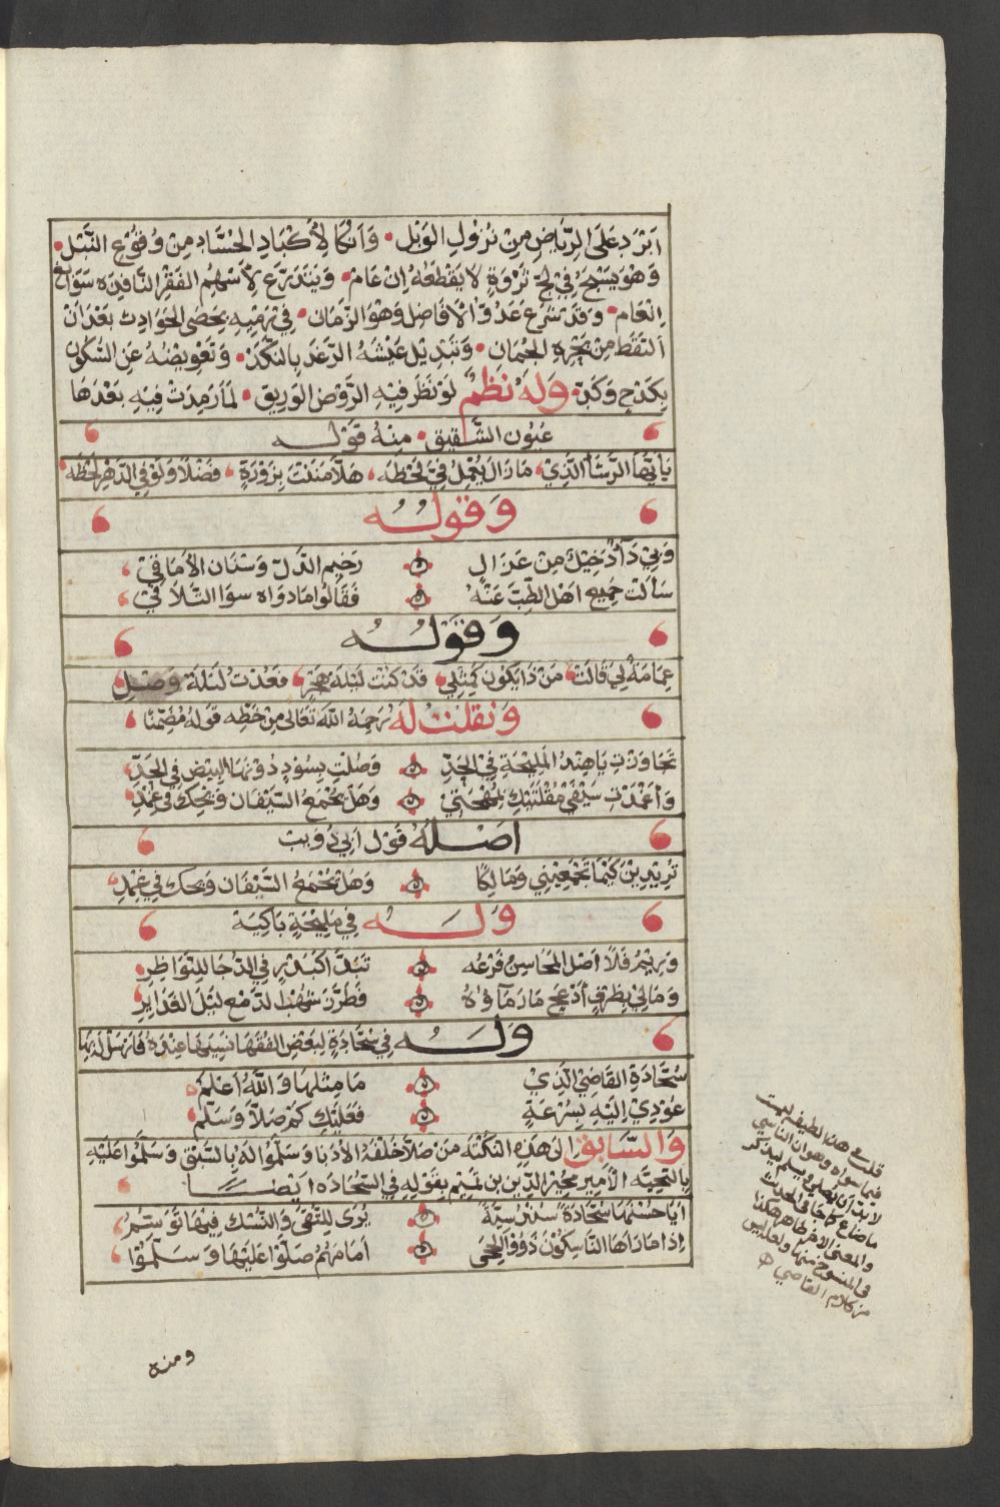 ابرد على الرياض من نزول الوبل • وانكا لأكباد الحساد من وقوع النبل •
وهو يسبح في لج ثروة لا يقطعه ان عام • ويتدرع لأسهم الفقر النافذه سوابغ
انعام • وقد شرع عدو الأفاضل وهو الزمان • في رميه بحصى الحوادث بعد ان
التقط من بحره الجمان • وتبديل عيشه الرغد بالنكد • وتعويضه عن السكون
بكدح وكد • وله نظم لو نظر فيه الروض الوريق • لما رمدت فيه بعدها
عيون الشقيق • منه قوله
يا ايها الرشأ الذي ، ما زال يثمل في لحظه ، هلا مننت بزورة ، فضلا ولو في الدهر لحظه
وقوله
وبي داء دخيل من غزال رخيم الدل وسنان الاماقي
سألت جميع اهل الطب عنه فقالوا ما دواه سوا التلاقي
وقوله
عمامة لي قالت ، من ذا يكون كمثلي ، قد كنت ليلة هجر ، فعدت ليلة وصل
ونقلت له رحمه الله تعالى من خطه قوله مضمنا
تجاوزت يا هند المليحة في الحد وصلت بسود دونها البيض في الحد
واغمدت سيفي مقلتيك بمهجتي وهل يجمع السيفان ويحك في غمد
اصله قول ابي ذؤيب
تريدين كيما تجمعيني ومالكا وهل تجمع السيفان ويحك في غمد
وله في مليحة باكية
وريم فلا اصل المحاسن فرعه تبدا كبدر في الدجا للنواظر
ومالي بظرف ادعج ما رماؤه فطرز شهب الدمع ليل الغدائر
وله في سجادة لبعض الفقها نسيها عنده فارسل له بها
سجادة القاضي الذي ما مثلها والله اعلم
عودي اليه بسرعة فعليك كم صلا وسلم
والسابق الى هذه النكته من صلا خلفه الأدبا وسلموا له بالسبق وسلموا عليه
بالتحيه الأمير مجير الدين بن تميم بقوله في السجاده ايضا
ايا حسنها سجادة سندسية يرى للتقى والنسك فيها توسم
اذا ما رآها الناسكون ذوو الحجى امامهم صلوا عليها وسلموا
قلت في هذا لطيفه ليست
فيما سواه وهو ان الناسي
لا بد أن يصلي ويسلم ليذكر
ما ضاع كما جا في الحديث
والمعنى الآخر ظاهر هكذا
في المنسوخ منها ولعله ليس
من كلام القاضي
ومنه